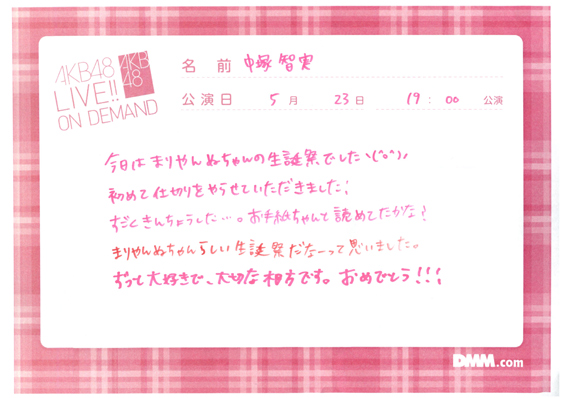 AKB48
LIVE!!
ON DEMAND
AKB
48
名 前 中塚智実
公演日 5 月 23 日 19 : 00 公演
今日はまりやんぬちゃんの生誕祭でしたヽ(°o°)ノ
初めて仕切りをやらせていただきました!
すごくきんちょうした…。お手紙ちゃんと読めてたかな?
まりやんぬちゃんらしい生誕祭だなーって思いました。
ずっと大好きで、大切な相方です。おめでとう!!!
DMM.com